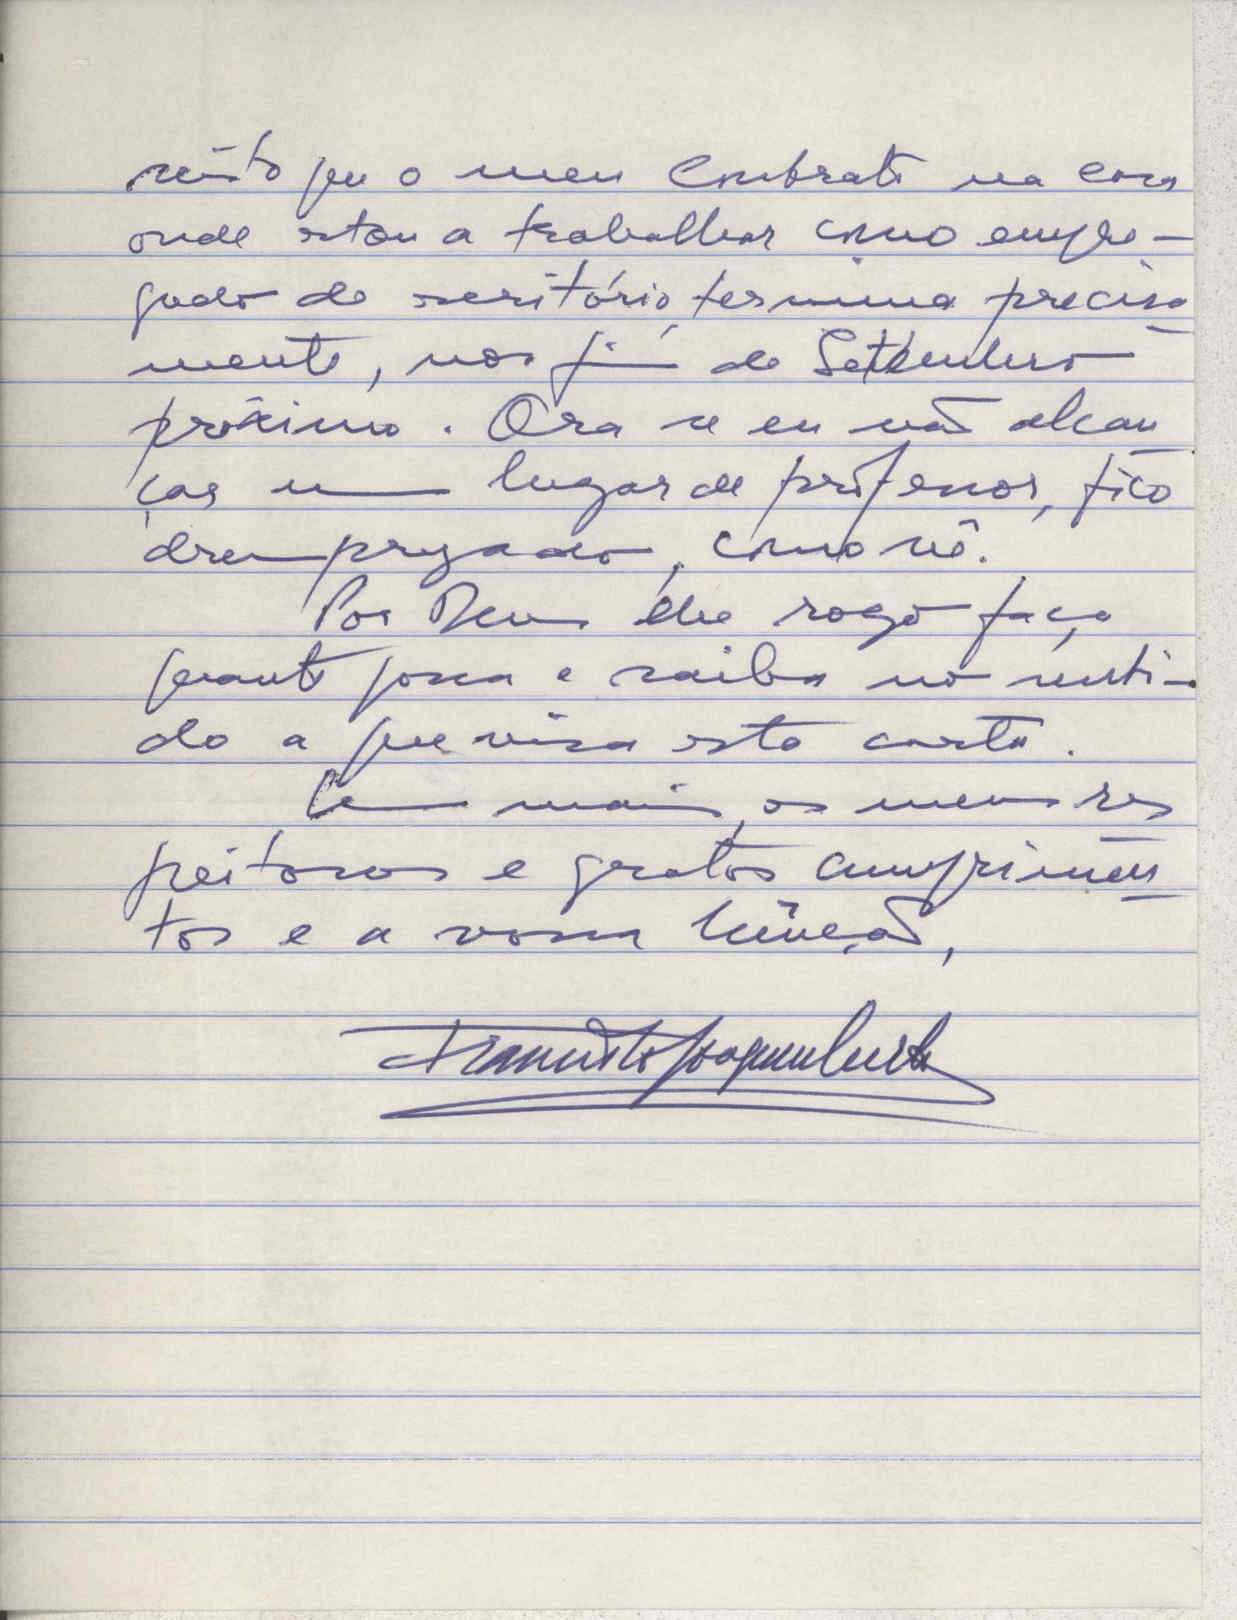 visto que o meu contrato na casa
onde estou a trabalhar como empre-
gado de escritório, termina precisa
mente, nos fim de Setembro
próximo. Ora se eu não alcan
çar um lugar de professor, fico
desempregado, como vê.
Por Deus lhe rogo faça
quanto possa e saiba no senti-
do a que visa esta carta.
Sem mais, os meus res
peitosos e gratos cumprimen
tos e a vossa bênção,
Francisco Joaquim